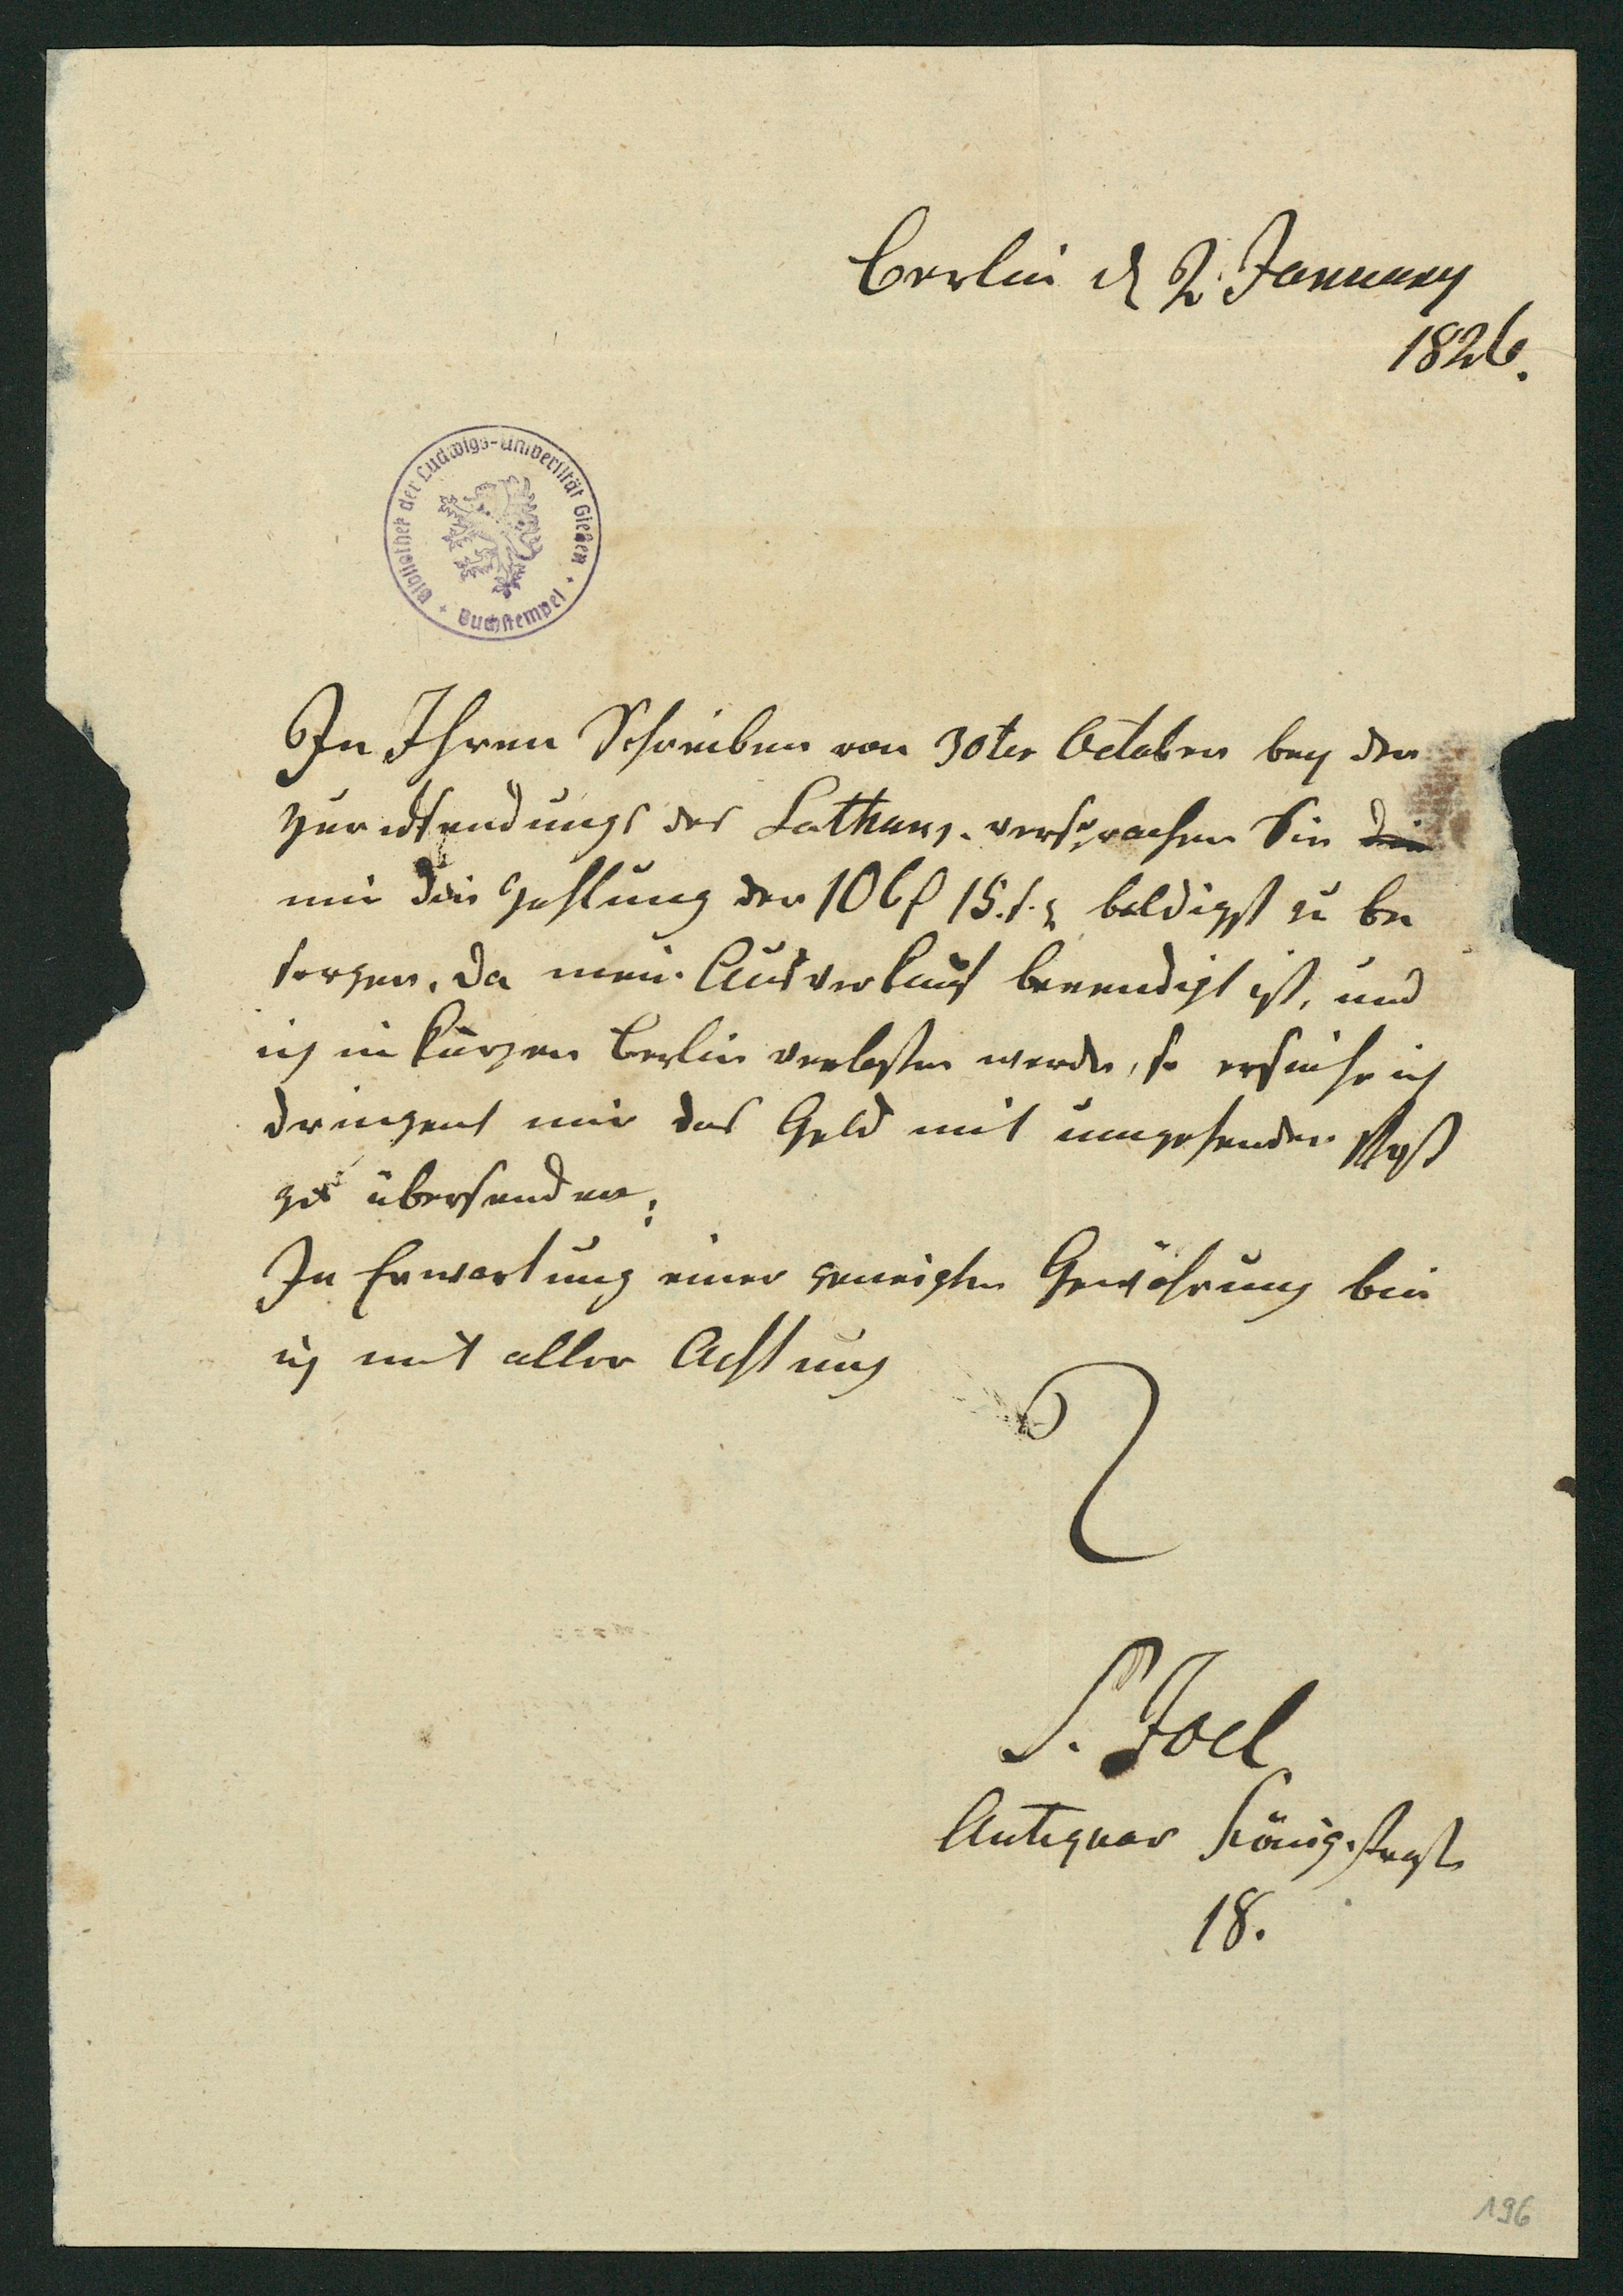 Berlin d 2 January
1826.
Bibliothek der Ludwigs-Universität Gießen
Buchstempel
In Ihren Schreiben von 30ten October bey der
zurüksendungs des versprachen Sie die
mir die Zahlung der 10 baldigst zu be
sorgen. Da mein Ausverkauf beendigt ist, und
ich in kurzen Berlin verlassen werde, so ersuche ich
dringent mir das Geld mit umgehender Post
zu übersenden.
In Erwartung einer geneigten Gewährung bin
ich mit aller Achtung
S. Joel
Antiquar Königstraße
18.
196